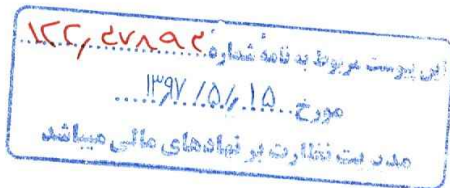 این پیوست مربوط به نامه شماره ۱۲۲/۴۷۸۹۲
مورخ ۱۳۹۷/۵/۱۵
مدیریت نظارت بر نهادهای مالی میباشد